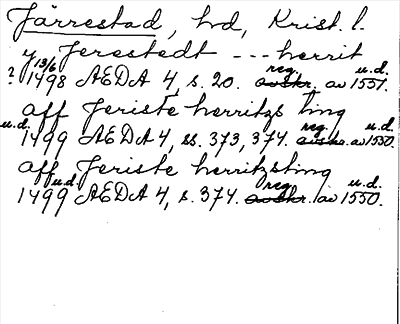 Järrestad, hd, Krist. l.
y Jerestedt --- herrit
? 13/6 1498 AEDA 4, s. 20. avskr. reg av u.d. 1551.
aff Jeriste herritzs ting
u.d. 1499 AEDA 4, ss. 373, 374. avskr. reg av u.d. 1550.
aff Jeriste herritzsting
u.d. 1499 AEDA 4, s. 374. avskr. reg av u.d. 1550.